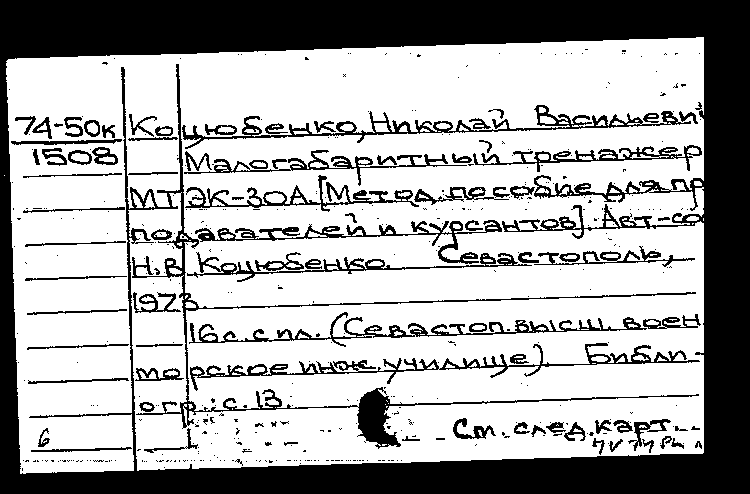 74-50к Коцюбенко, Николай Васильевич
1508 Малогабаритный тренажер
МТЭК-30А. [Метод. пособие для пр
подавателей и курсантов]. Авт.-сос
Н.В. Коцюбенко. Севастополь,
1973.
16 с. с ил. (Севастоп. высш. воен
морское инж. училище). Библи-
огр.: с. 13.
6 См. след. карт.